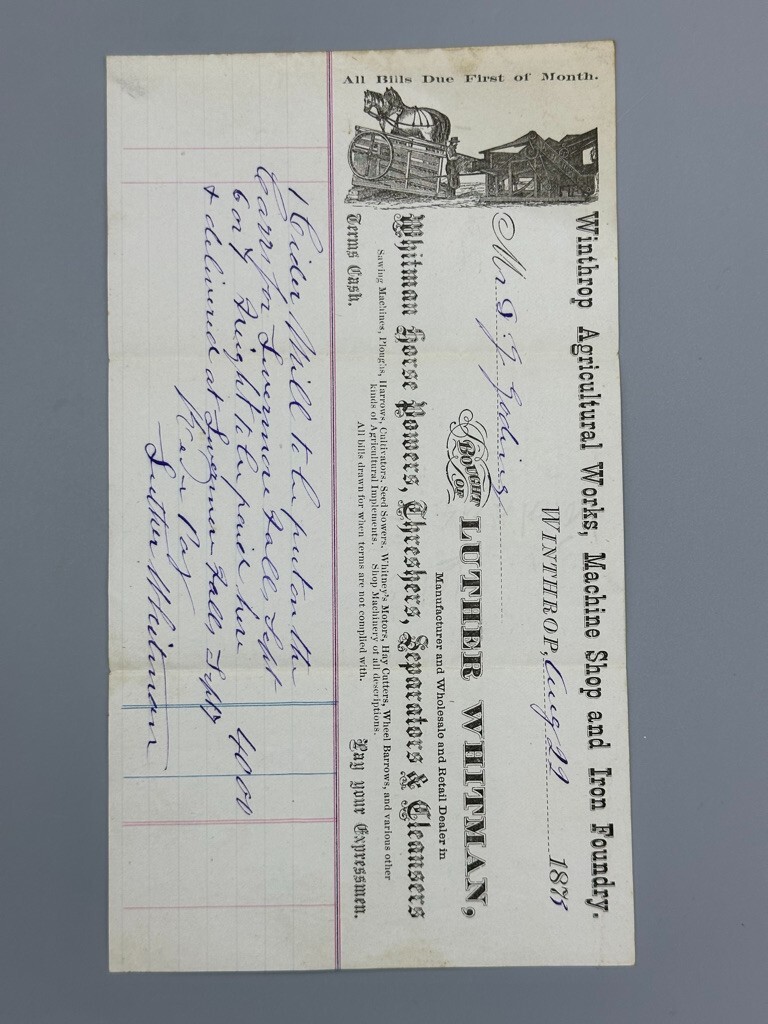 All Bills Due First of Month.
Winthrop Agricultural Works, Machine Shop and Iron Foundry.
WINTHROP, Aug 29 1875
Mr
BOUGHT OF LUTHER WHITMAN,
Manufacturer and Wholesale and Retail Dealer in
Whitman Horse Powers, Threshers, Separators & Cleansers
Sawing Machines, Ploughs, Harrows, Cultivators, Seed Sowers, Whitney's Motors, Hay Cutters, Wheel Barrows, and various other
kinds of Agricultural Implements. Shop Machinery of all descriptions.
All bills drawn for when terms are not complied with.
Terms Cash. Pay your Expressmen.
1 Cider Mill to be put on the
Cars for Livermore Falls Sept
6 or 7 Freight to be paid here
& delivered at Livermore Falls Sept 7 40 00
Rec Pay
Luther Whitman